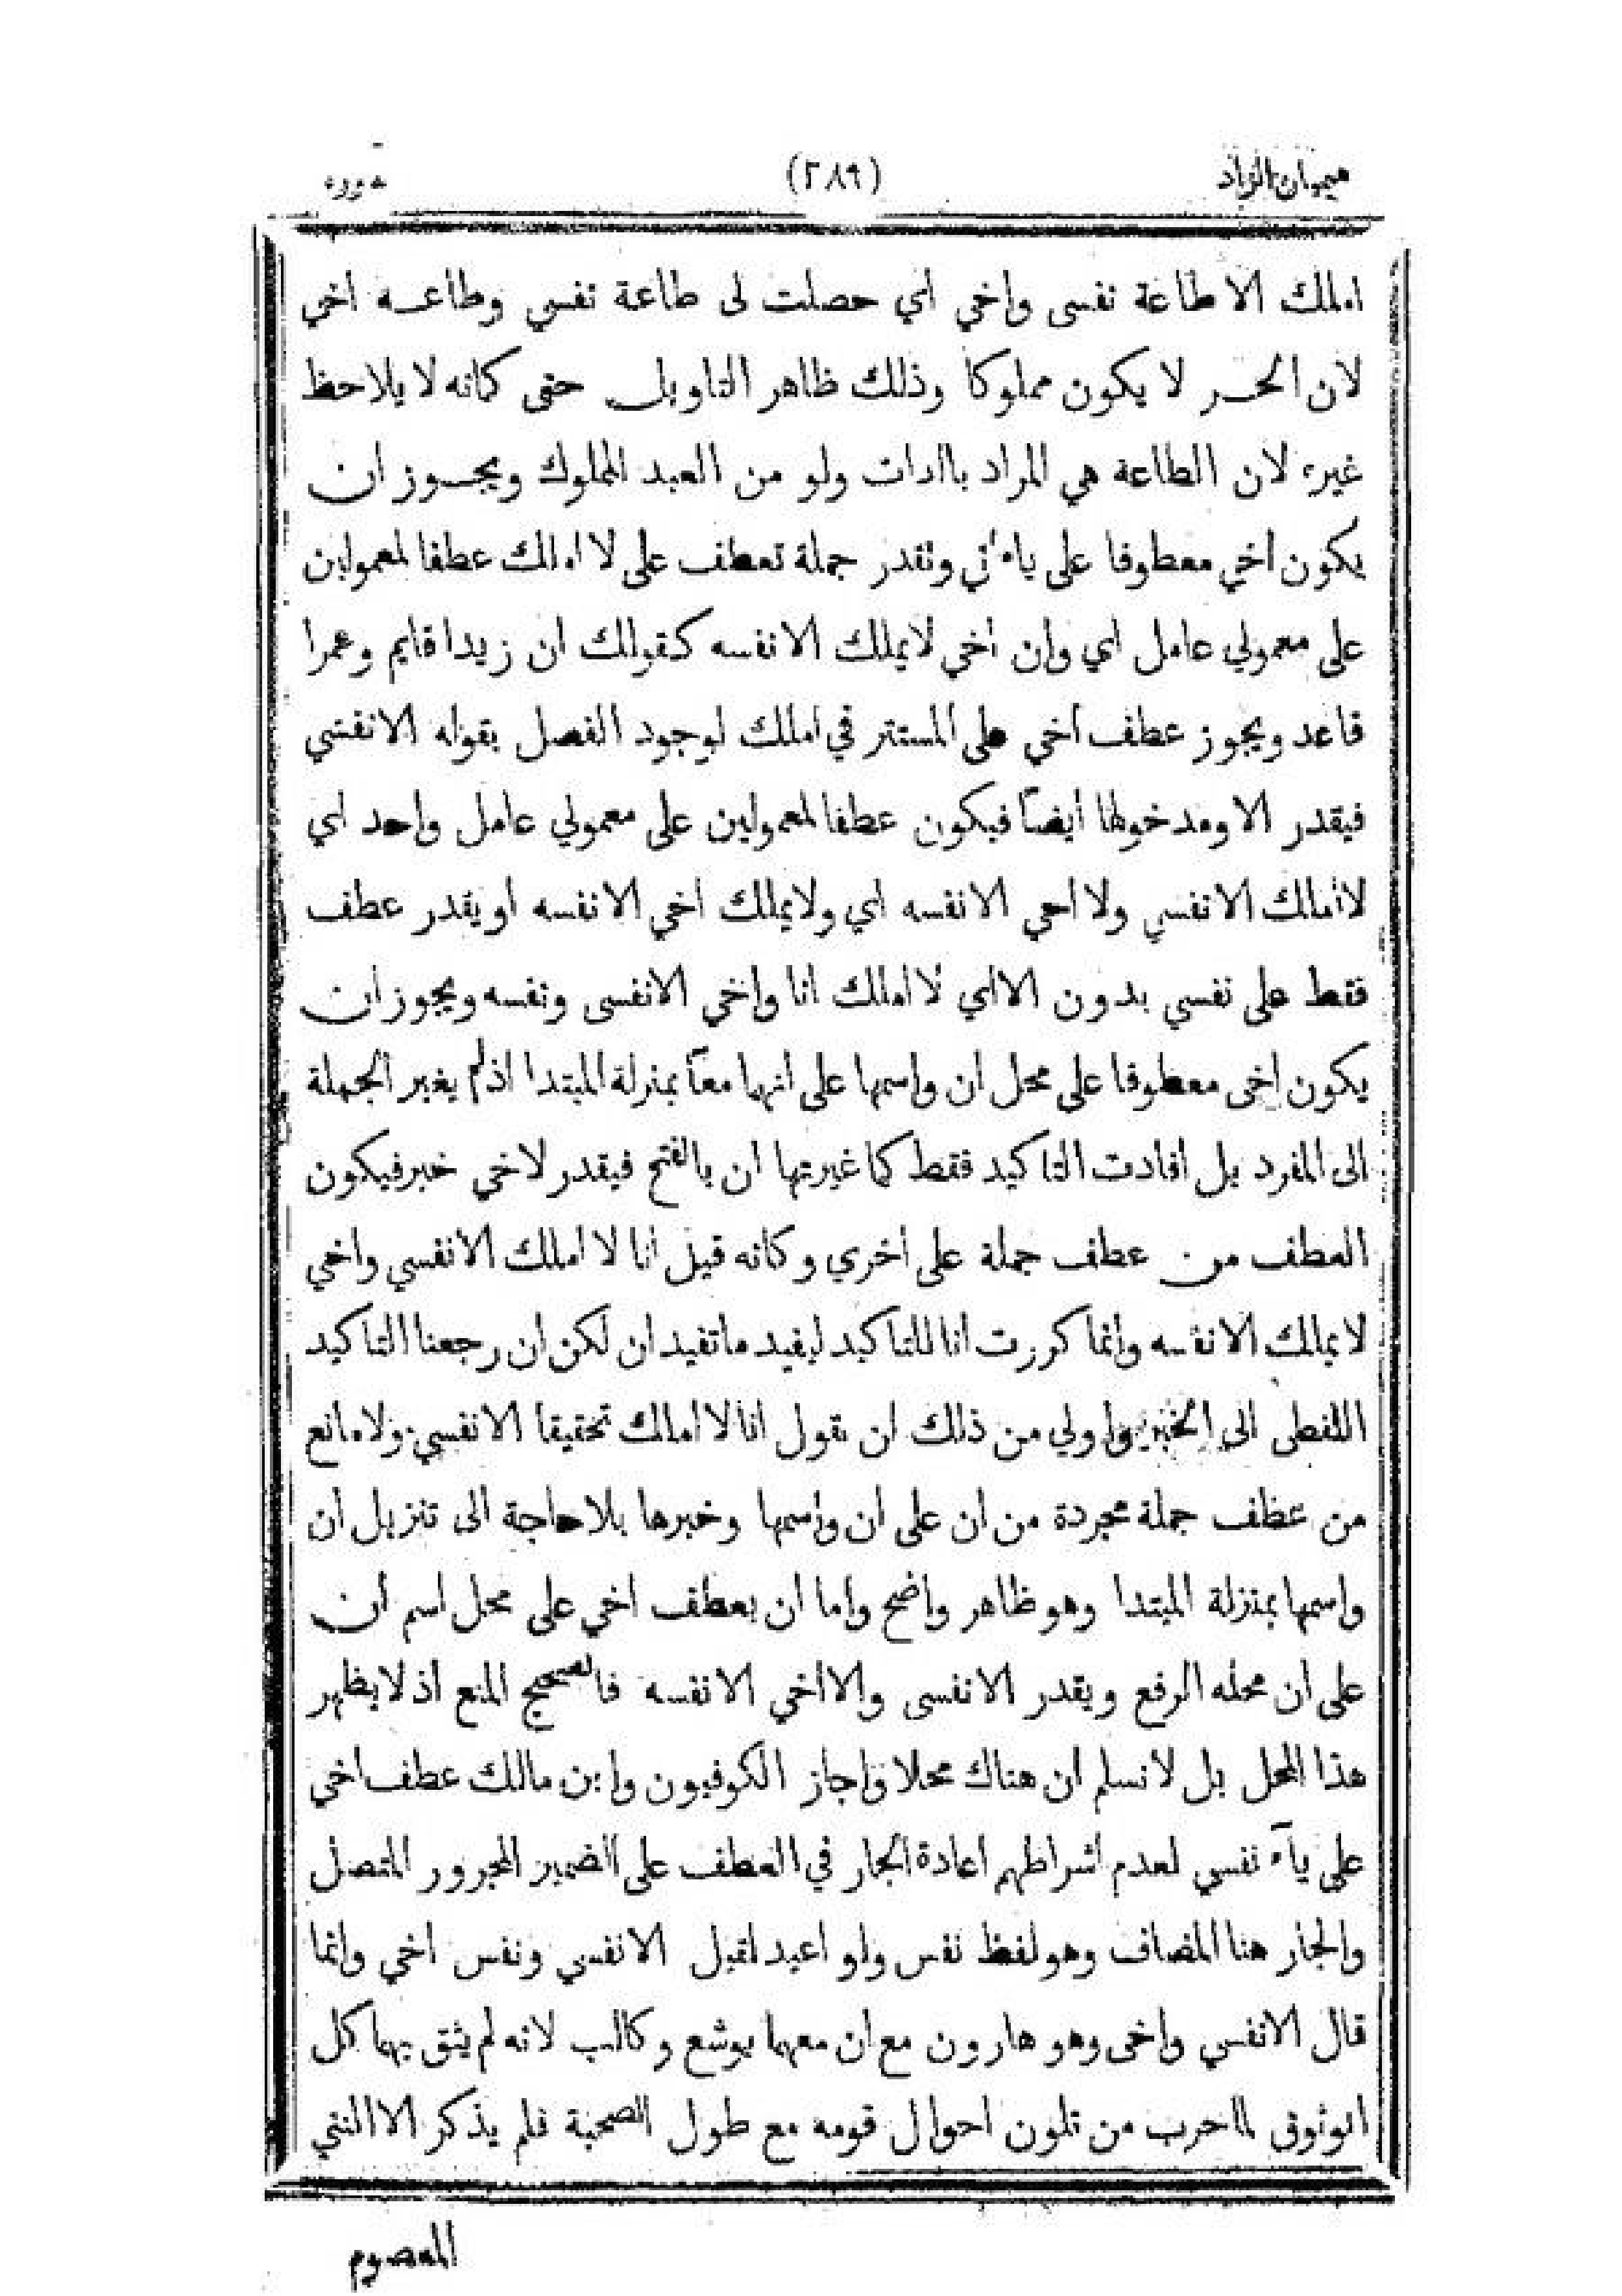 هميان الزاد (٢٨٩) سورة
املك الا طاعة نفسى واخي اي حصلت لى طاعة نفسي وطاعــه اخي
لان الحــر لا يكون مملوكا وذلك ظاهر التاويل حتى كانه لا يلاحظ
غيره لان الطاعة هي المراد بالذات ولو من العبد المملوك ويجــوز ان
يكون اخي معطوفا على ياء اني وتقدر جملة تعطف على لا املك عطفا لمعمولين
على معمولي عامل اي وان أخي لايملك الا نفسه كقولك ان زيدا قايم وعمرا
قاعد ويجوز عطف اخي على المستتر في املك لوجود الفصل بقوله الا نفسي
فيقدر الا ومدخولها أيضاً فيكون عطفا لمعمولين على معمولي عامل واحد اي
لاأملك الا نفسي ولا اخي الا نفسه اي ولايملك اخي الا نفسه او يقدر عطف
فقط على نفسي بدون الا اي لا املك انا واخي الا نفسى ونفسه ويجوز ان
يكون اخى معطوفا على محل ان واسمها على انهما معاً بمنزلة المبتدا اذلم يغير الجملة
الى المفرد بل افادت التاكيد فقط كما غيرتها ان بالفتح فيقدر لاخي خبر فيكون
العطف من عطف جملة على أخري وكانه قيل انا لا املك الا نفسي واخي
لا يملك الا نفسه وانما كررت انا للتاكيد ليفيد ما تفيد ان لكن ان رجعنا التاكيد
اللفظى الى الخبر واولي من ذلك ان نقول انا لا املك تحقيقا الا نفسي ولامانع
من عطف جملة مجردة من ان على ان واسمها وخبرها بلا حاجة الى تنزيل ان
واسمها بمنزلة المبتدا وهو ظاهر واضح واما ان يعطف اخي على محل اسم ان
على ان محله الرفع ويقدر الا نفسى والا اخي الا نفسه فالصحيح المنع اذ لا يظهر
هذا المحل بل لا نسلم ان هناك محلا واجاز الكوفيون وابن مالك عطف اخي
على ياء نفسي لعدم اشراطهم اعادة الجار في العطف على الضمير المجرور المتصل
والجار هنا المضاف وهو لفظ نفس ولو اعيد لقيل الا نفسي ونفس اخي وانما
قال الا نفسي واخى وهو هارون مع ان معهما يوشع وكالب لانه لم يثق بهما كل
الوثوق لما جرب من تلون احوال قومه مع طول الصحبة فلم يذكر الا النبي
المعصوم